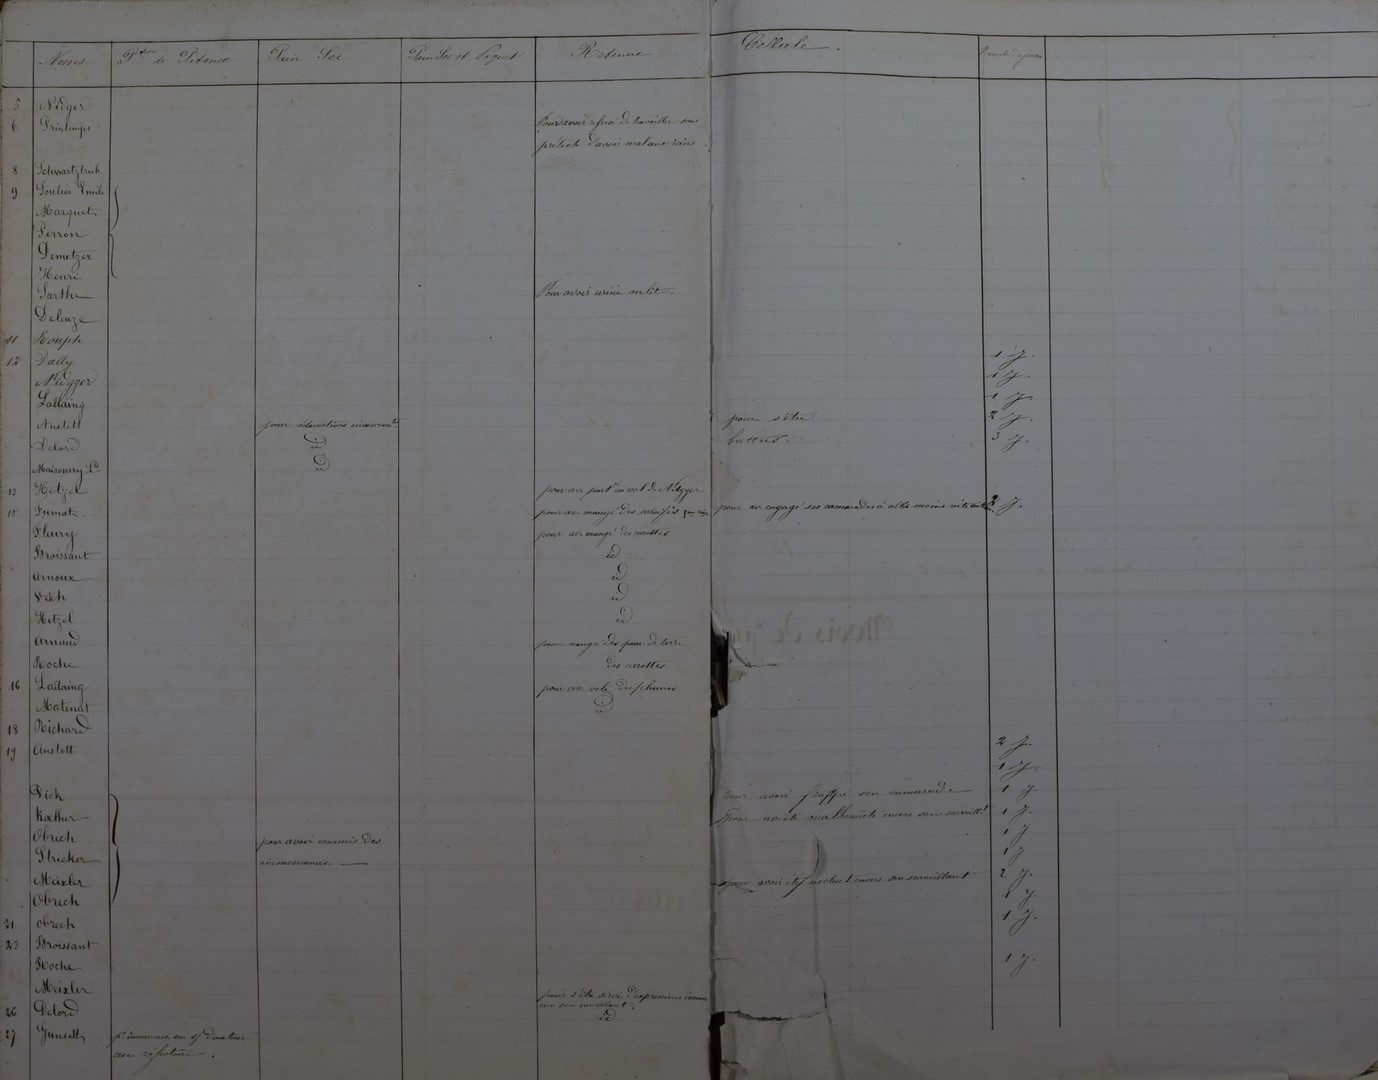 Noms Pon de Pitance Pain Sec Pain Sec et Piquet Retenue Cellule.
5 Nidger
6 Printemps Pour avoir refusé de travailler sous
prétexte d'avoir mal aux reins
8 Schwartztrub
9 Soulier Emile
Marquet
Perron
Demetzer
Henri
Sarthe Pour avoir uriné au lit.
Deleuze
11 Rouph
12 Dally 1 J.
Nidgger 1 J.
Lallaing 1 J.
Anstett pour pour s'être 2 J.
Delord id battus. 3 J.
Maisonny id
13 Hetzel pour av. part. au vol de Nidgger
15 Fumat pour av. mangé des salsifis pour av. engagé ses camarades à aller moins vite 2 J.
Fleury pour av. mangé des carottes
Broissant id
Arnoux id
Vech id
Hetzel id
Arnaud pour mangé des pom. de terre
Roche des carottes
16 Lallaing pour av. volé des plumes
Matinat id
18 Richard
19 Anstett 2 J.
1 J.
Vich pour avoir frappé son camarade 1 J.
Kather pour av. été malhonnête envers son surveillt 1 J.
Obrech pour avoir commis des 1 J
Stricker inconvenances. 1 J
Meixler pour avoir été insolent envers son surveillant 2 J.
Obrech 1 J
21 Obrech 1 J.
23 Broissant
Roche 1 J.
Meixler pour s'être servi d'expressions
son surveillant.
26 Delord id
27 Gunsett
au réfectoire.